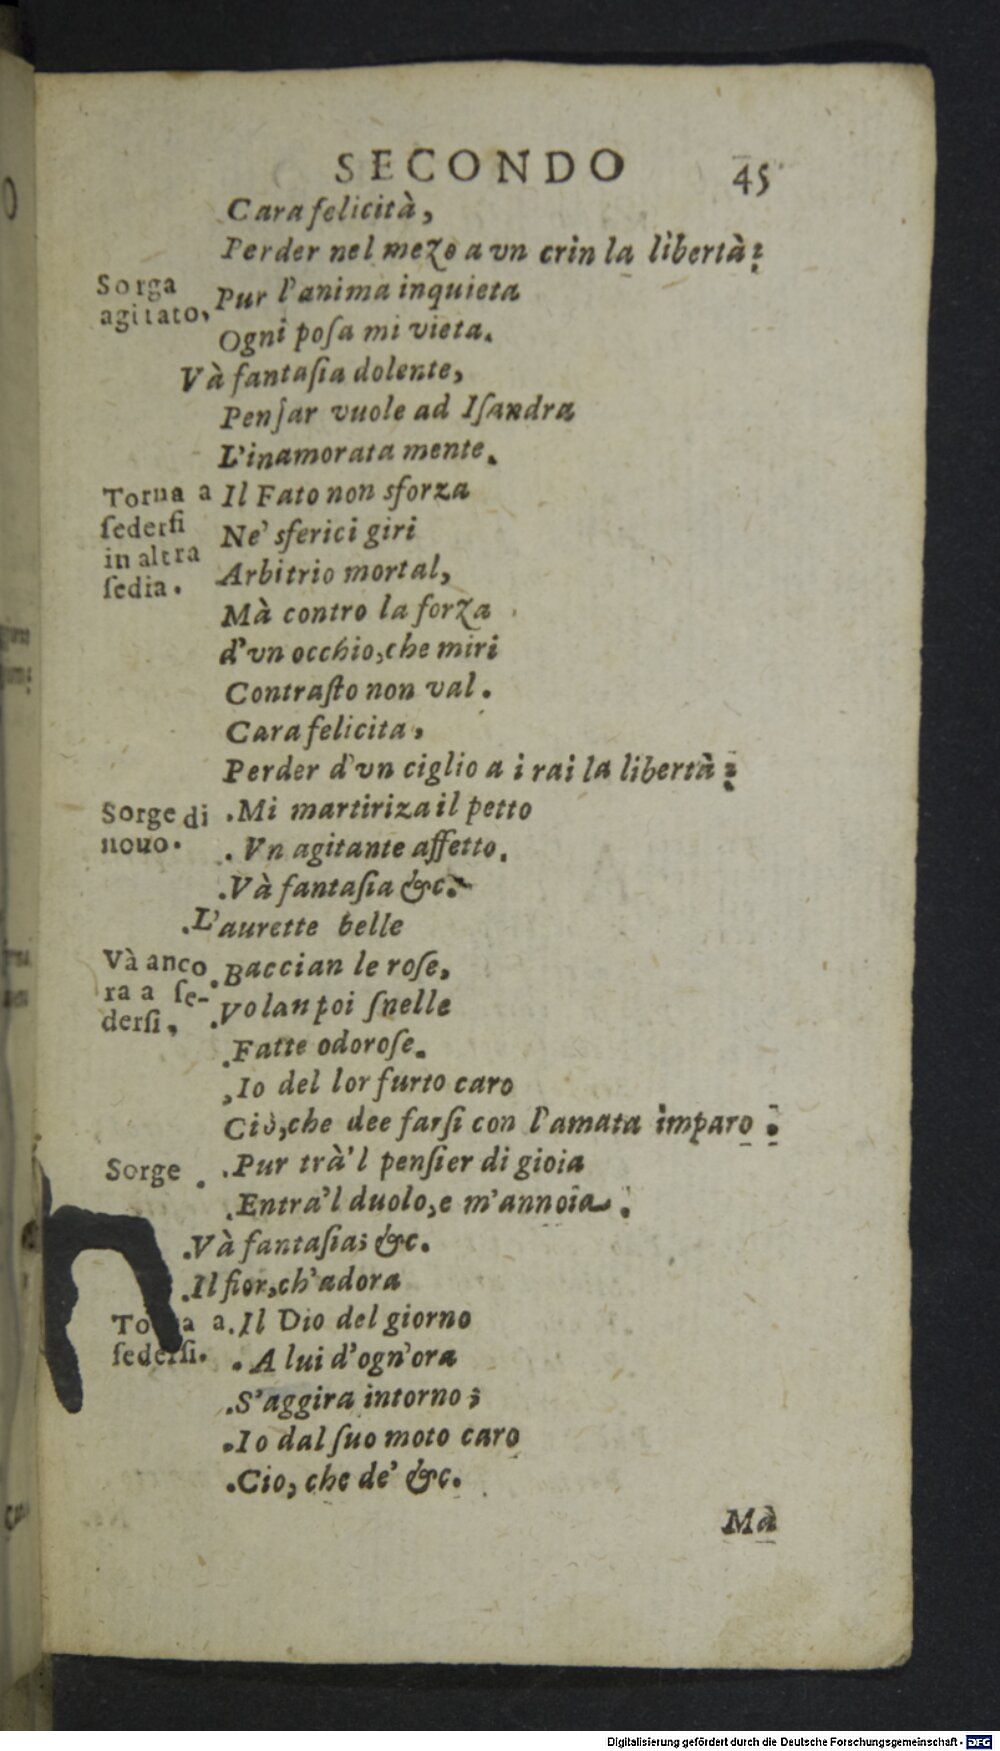 SECONDO 45
Cara felicità,
Perder nel mezo a vn crin la libertà?
Sorga
agitato,
Pur l'anima inquieta
Ogni posa mi vieta.
Và fantasia dolente,
Pensar vuole ad Isandra
L'inamorata mente.
Torna a
sedersi
in altra
sedia.
Il Fato non sforza
Ne' sferici giri
Arbitrio mortal,
Mà contro la forza
d'vn occhio, che miri
Contrasto non val.
Cara felicita,
Perder d'vn ciglio a i rai la libertà?
Sorge di
nouo.
.Mi martiriza il petto
. Vn agitante affetto.
.Và fantasia &c.
.L'aurette belle
Và anco
ra a se-
dersi,
.Baccian le rose,
.Volan poi snelle
.Fatte odorose.
,Io del lor furto caro
Ciò, che dee farsi con l'amata imparo.
Sorge .
.Pur trà'l pensier di gioia
.Entra'l duolo, e m'annoia.
.Và fantasia; &c.
.Il fior, ch'adora
Torna a
sedersi.
.Il Dio del giorno
. A lui d'ogn'ora
.S'aggira intorno;
.Io dal suo moto caro
.Cio, che de' &c.
Mà
Digitalisierung gefördert durch die Deutsche Forschungsgemeinschaft - DFG